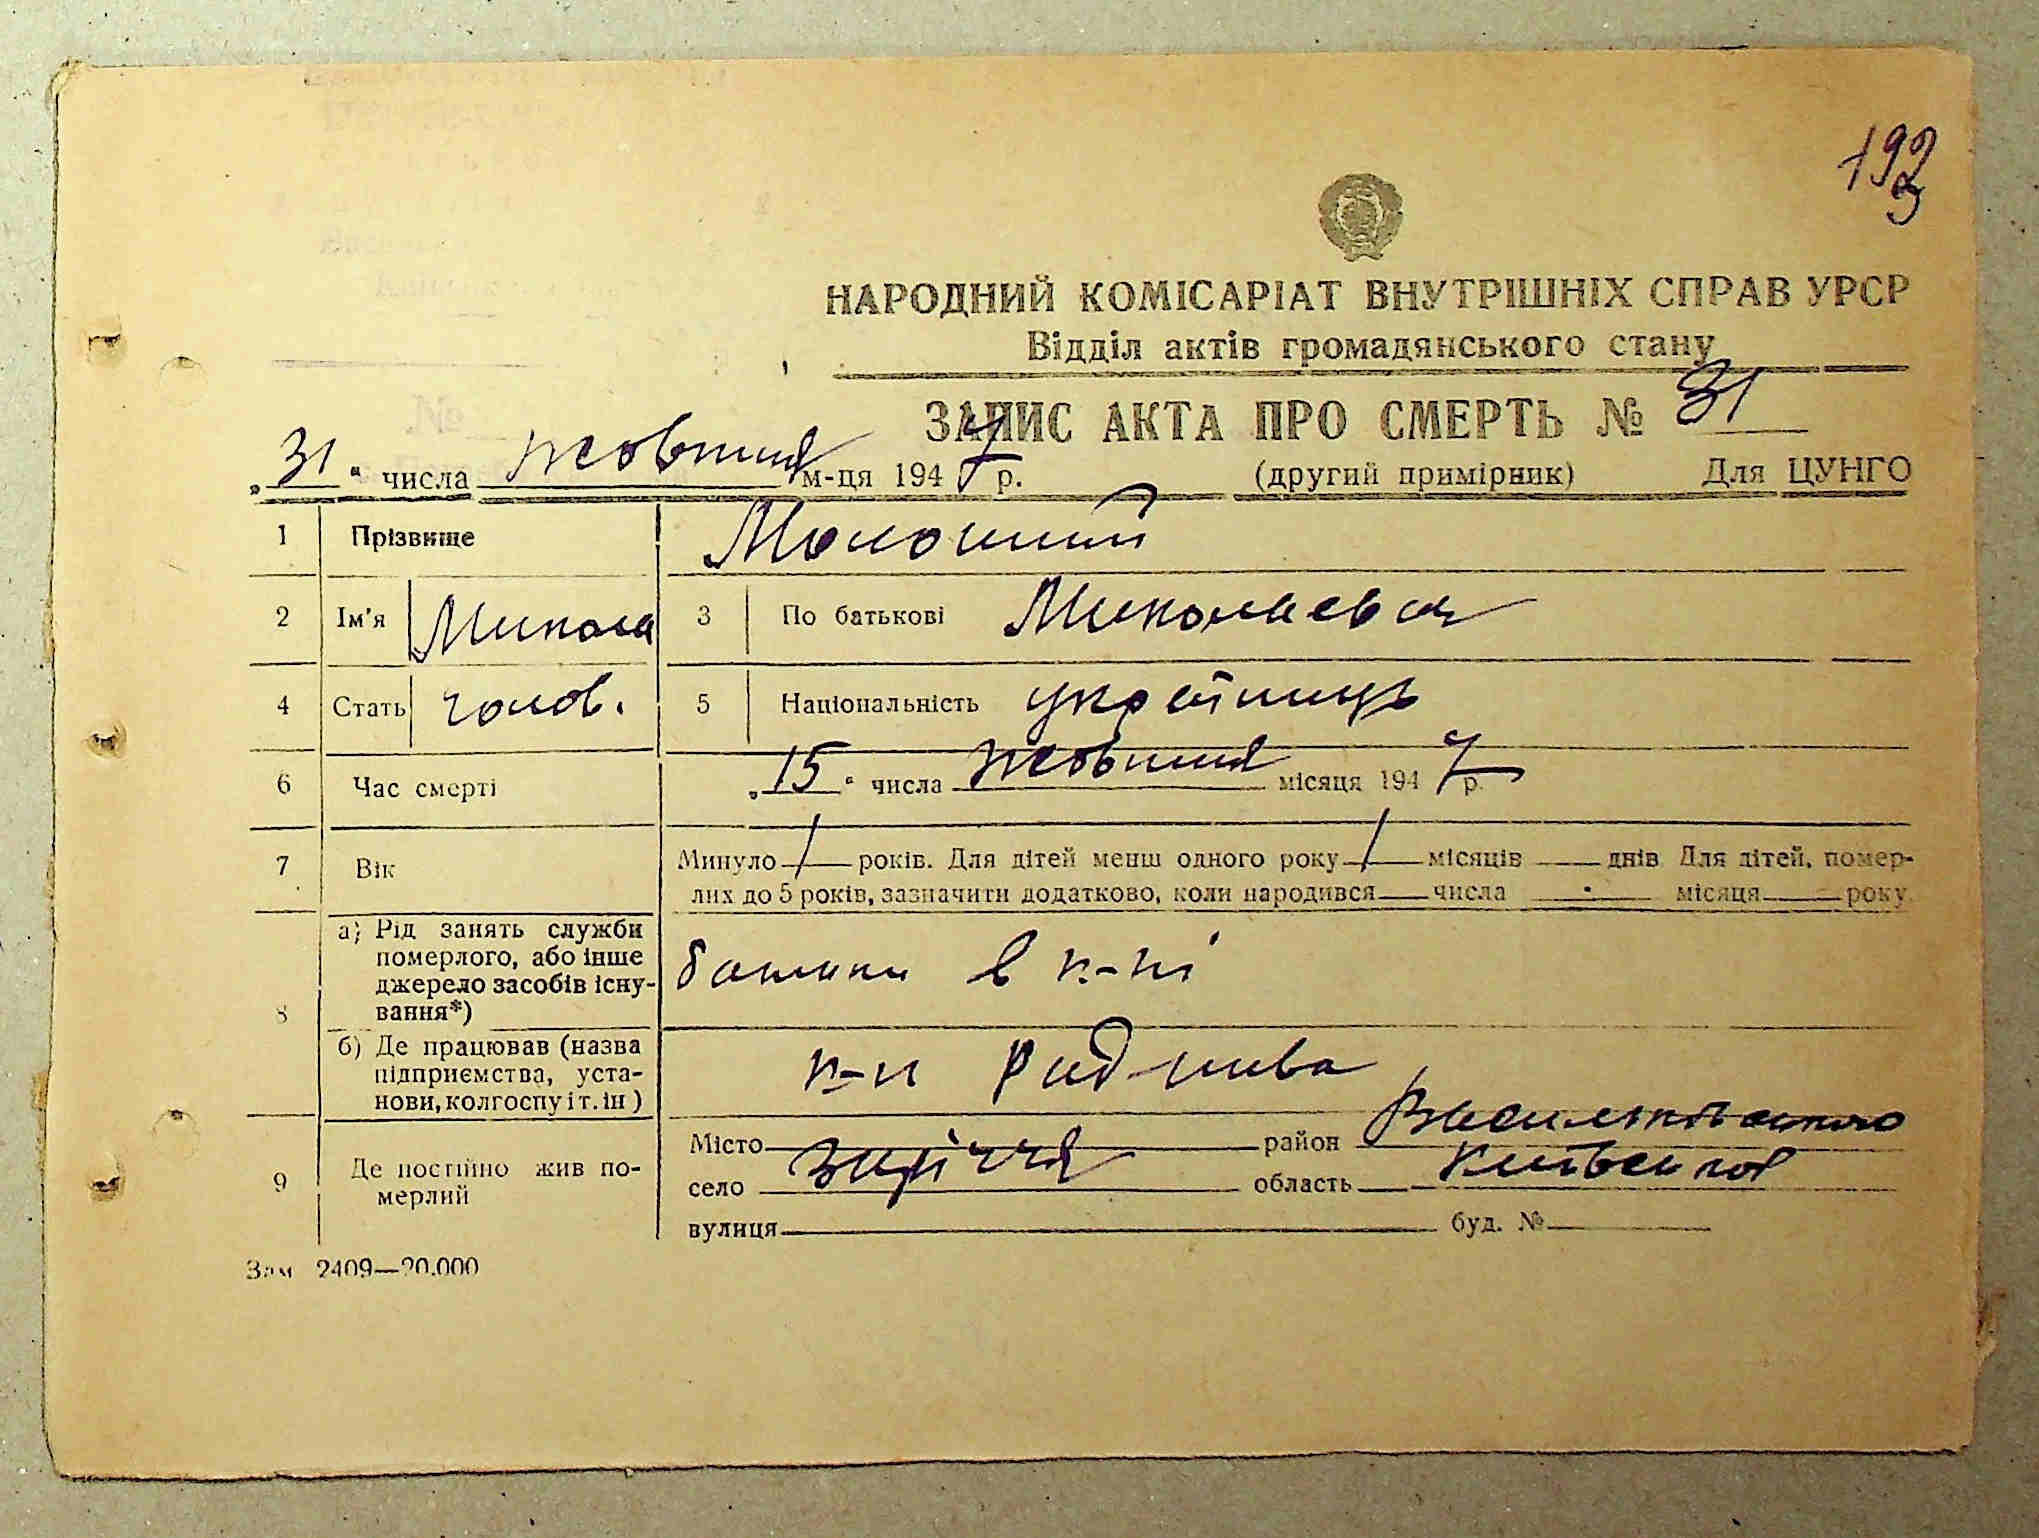 193
НАРОДНИЙ КОМІСАРІАТ ВНУТРІШНІХ СПРАВ УРСР
Відділ актів громадянського стану
ЗАПИС АКТА ПРО СМЕРТЬ № 31
„31“ числа жовтня м-ця 1947 р. (другий примірник) Для ЦУНГО
1 Прізвище
2 Ім'я Микола 3 По батькові Миколаевич
4 Стать чолов. 5 Національність українець
6 Час смерті „15“ числа жовтня місяця 1947 р.
7 Вік Минуло / років. Для дітей менш одного року / місяців днів Для дітей, помер-
лих до 5 років, зазначити додатково, коли народився числа місяця року
8 а) Рід занять служби померлого, або інше джерело засобів існу-вання*) батьки в к-пі
б) Де працював (назва підприємства, уста-нови, колгоспу і т. ін) к-п Рад нива
9 Де постійно жив по-мерлий Місто район Васильківського
село Заріччя область Київська
вулиця буд. №
Зам 2409—20.000